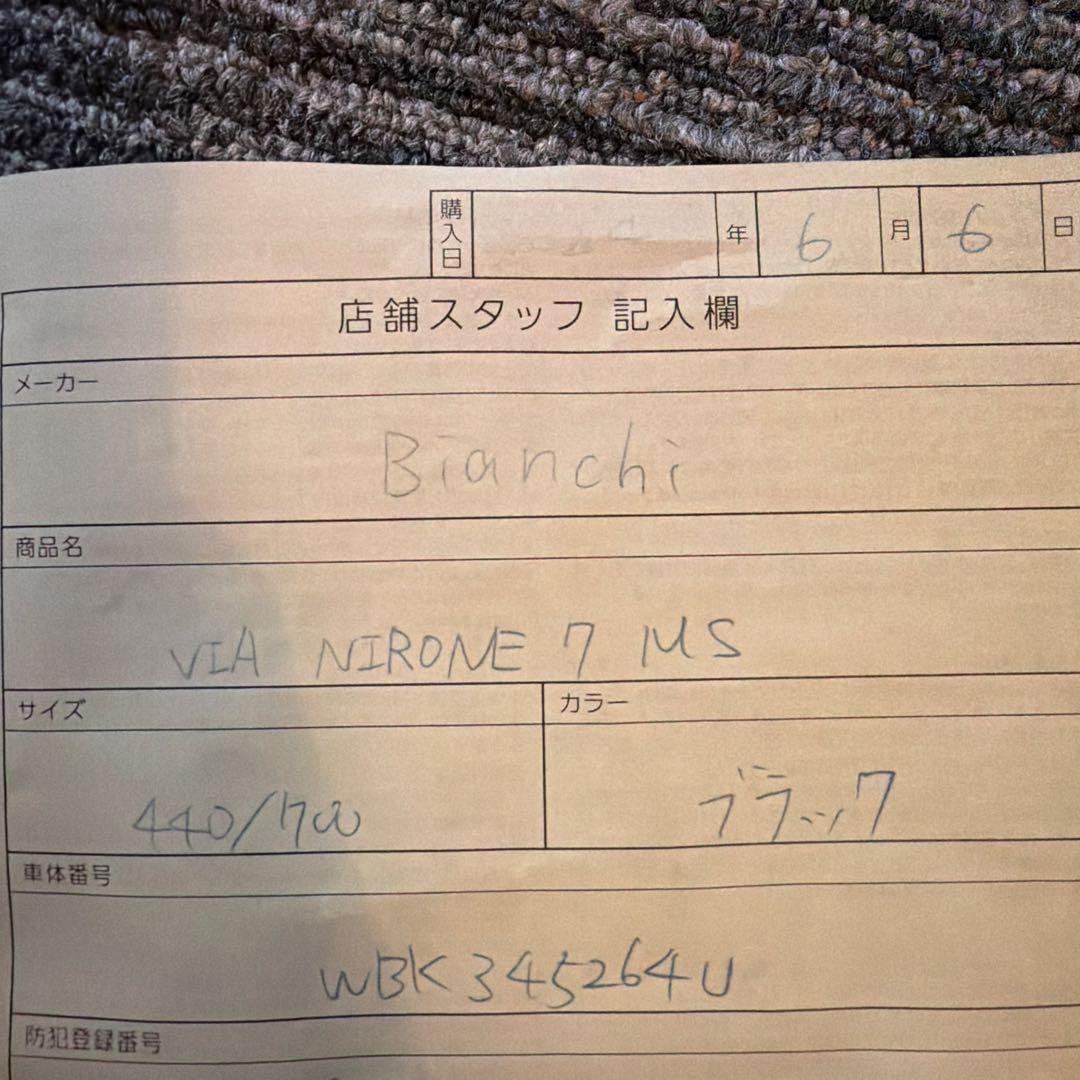 購入日 年 6 月 6 日
店舗スタッフ 記入欄
メーカー
Bianchi
商品名
VIA NIRONE 7 MS
サイズ カラー
440/700 ブラック
車体番号
WBK345264U
防犯登録番号